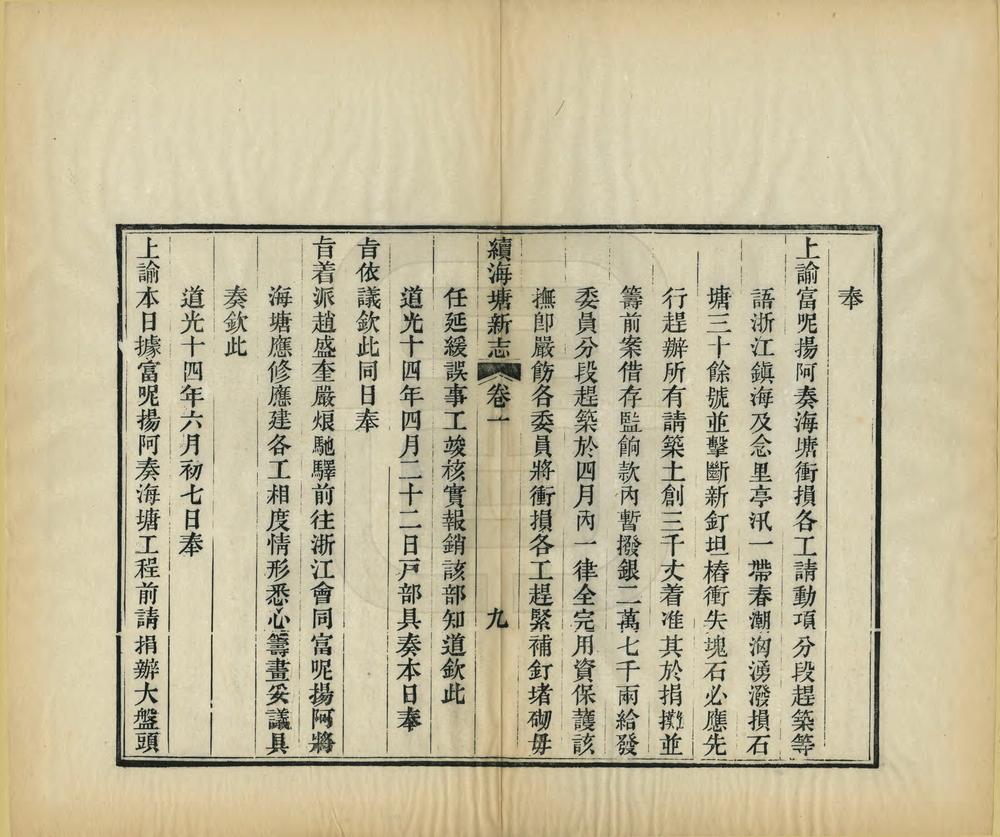 奉
上諭富呢揚阿奏海塘衝損各工請動項分段趕築等
語浙江鎮海及念里亭汛一帶春潮洶湧潑損石
塘三十餘號並擊斷新釘坦樁衝失塊石必應先
行趕辦所有請築土創三千丈着准其於捐攤並
籌前案借存監餉款內暫撥銀二萬七千兩給發
委員分段趕築於四月內一律全完用資保護該
撫卽嚴飭各委員將衝損各工趕緊補釘堵砌毋
續海塘新志 卷一 九
任延緩誤事工竣核實報銷該部知道欽此
道光十四年四月二十二日戸部具奏本日奉
旨依議欽此同日奉
旨着派趙盛奎嚴烺馳驛前往浙江會同富呢揚阿將
海塘應修應建各工相度情形悉心籌畫妥議具
奏欽此
道光十四年六月初七日奉
上諭本日據富呢揚阿奏海塘工程前請捐辦大盤頭